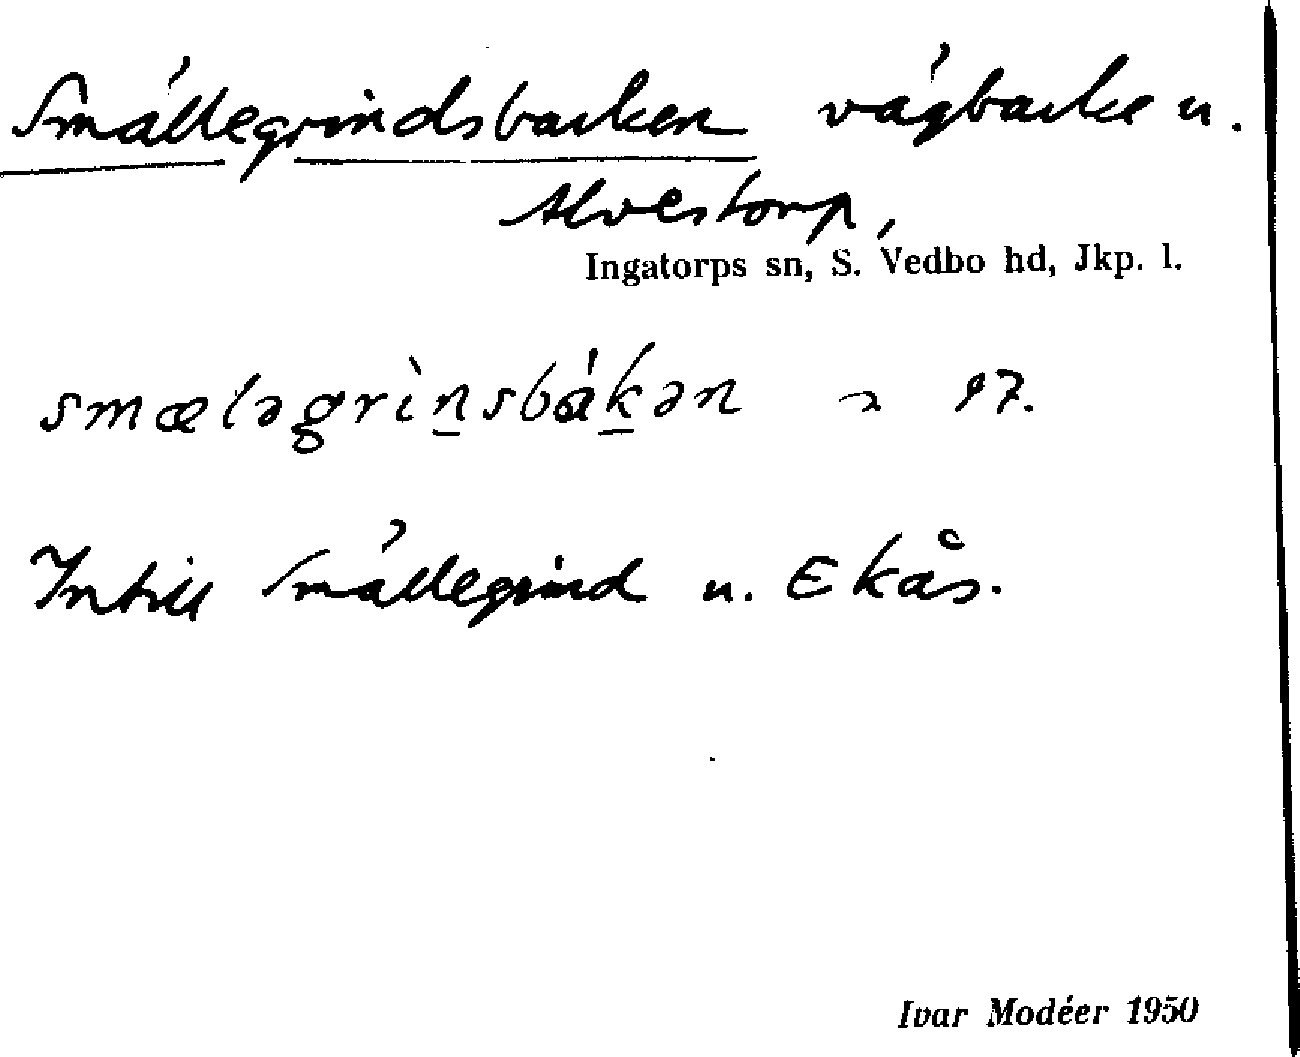 Smällegrindsbacken vägbacke u.
Alvestorp,
Ingatorps sn, S. Vedbo hd, Jkp. l.
smæləgrìn̲sbák̲ən 17.
Intill Smällegrind u. Ekås.
Ivar Modéer 1950